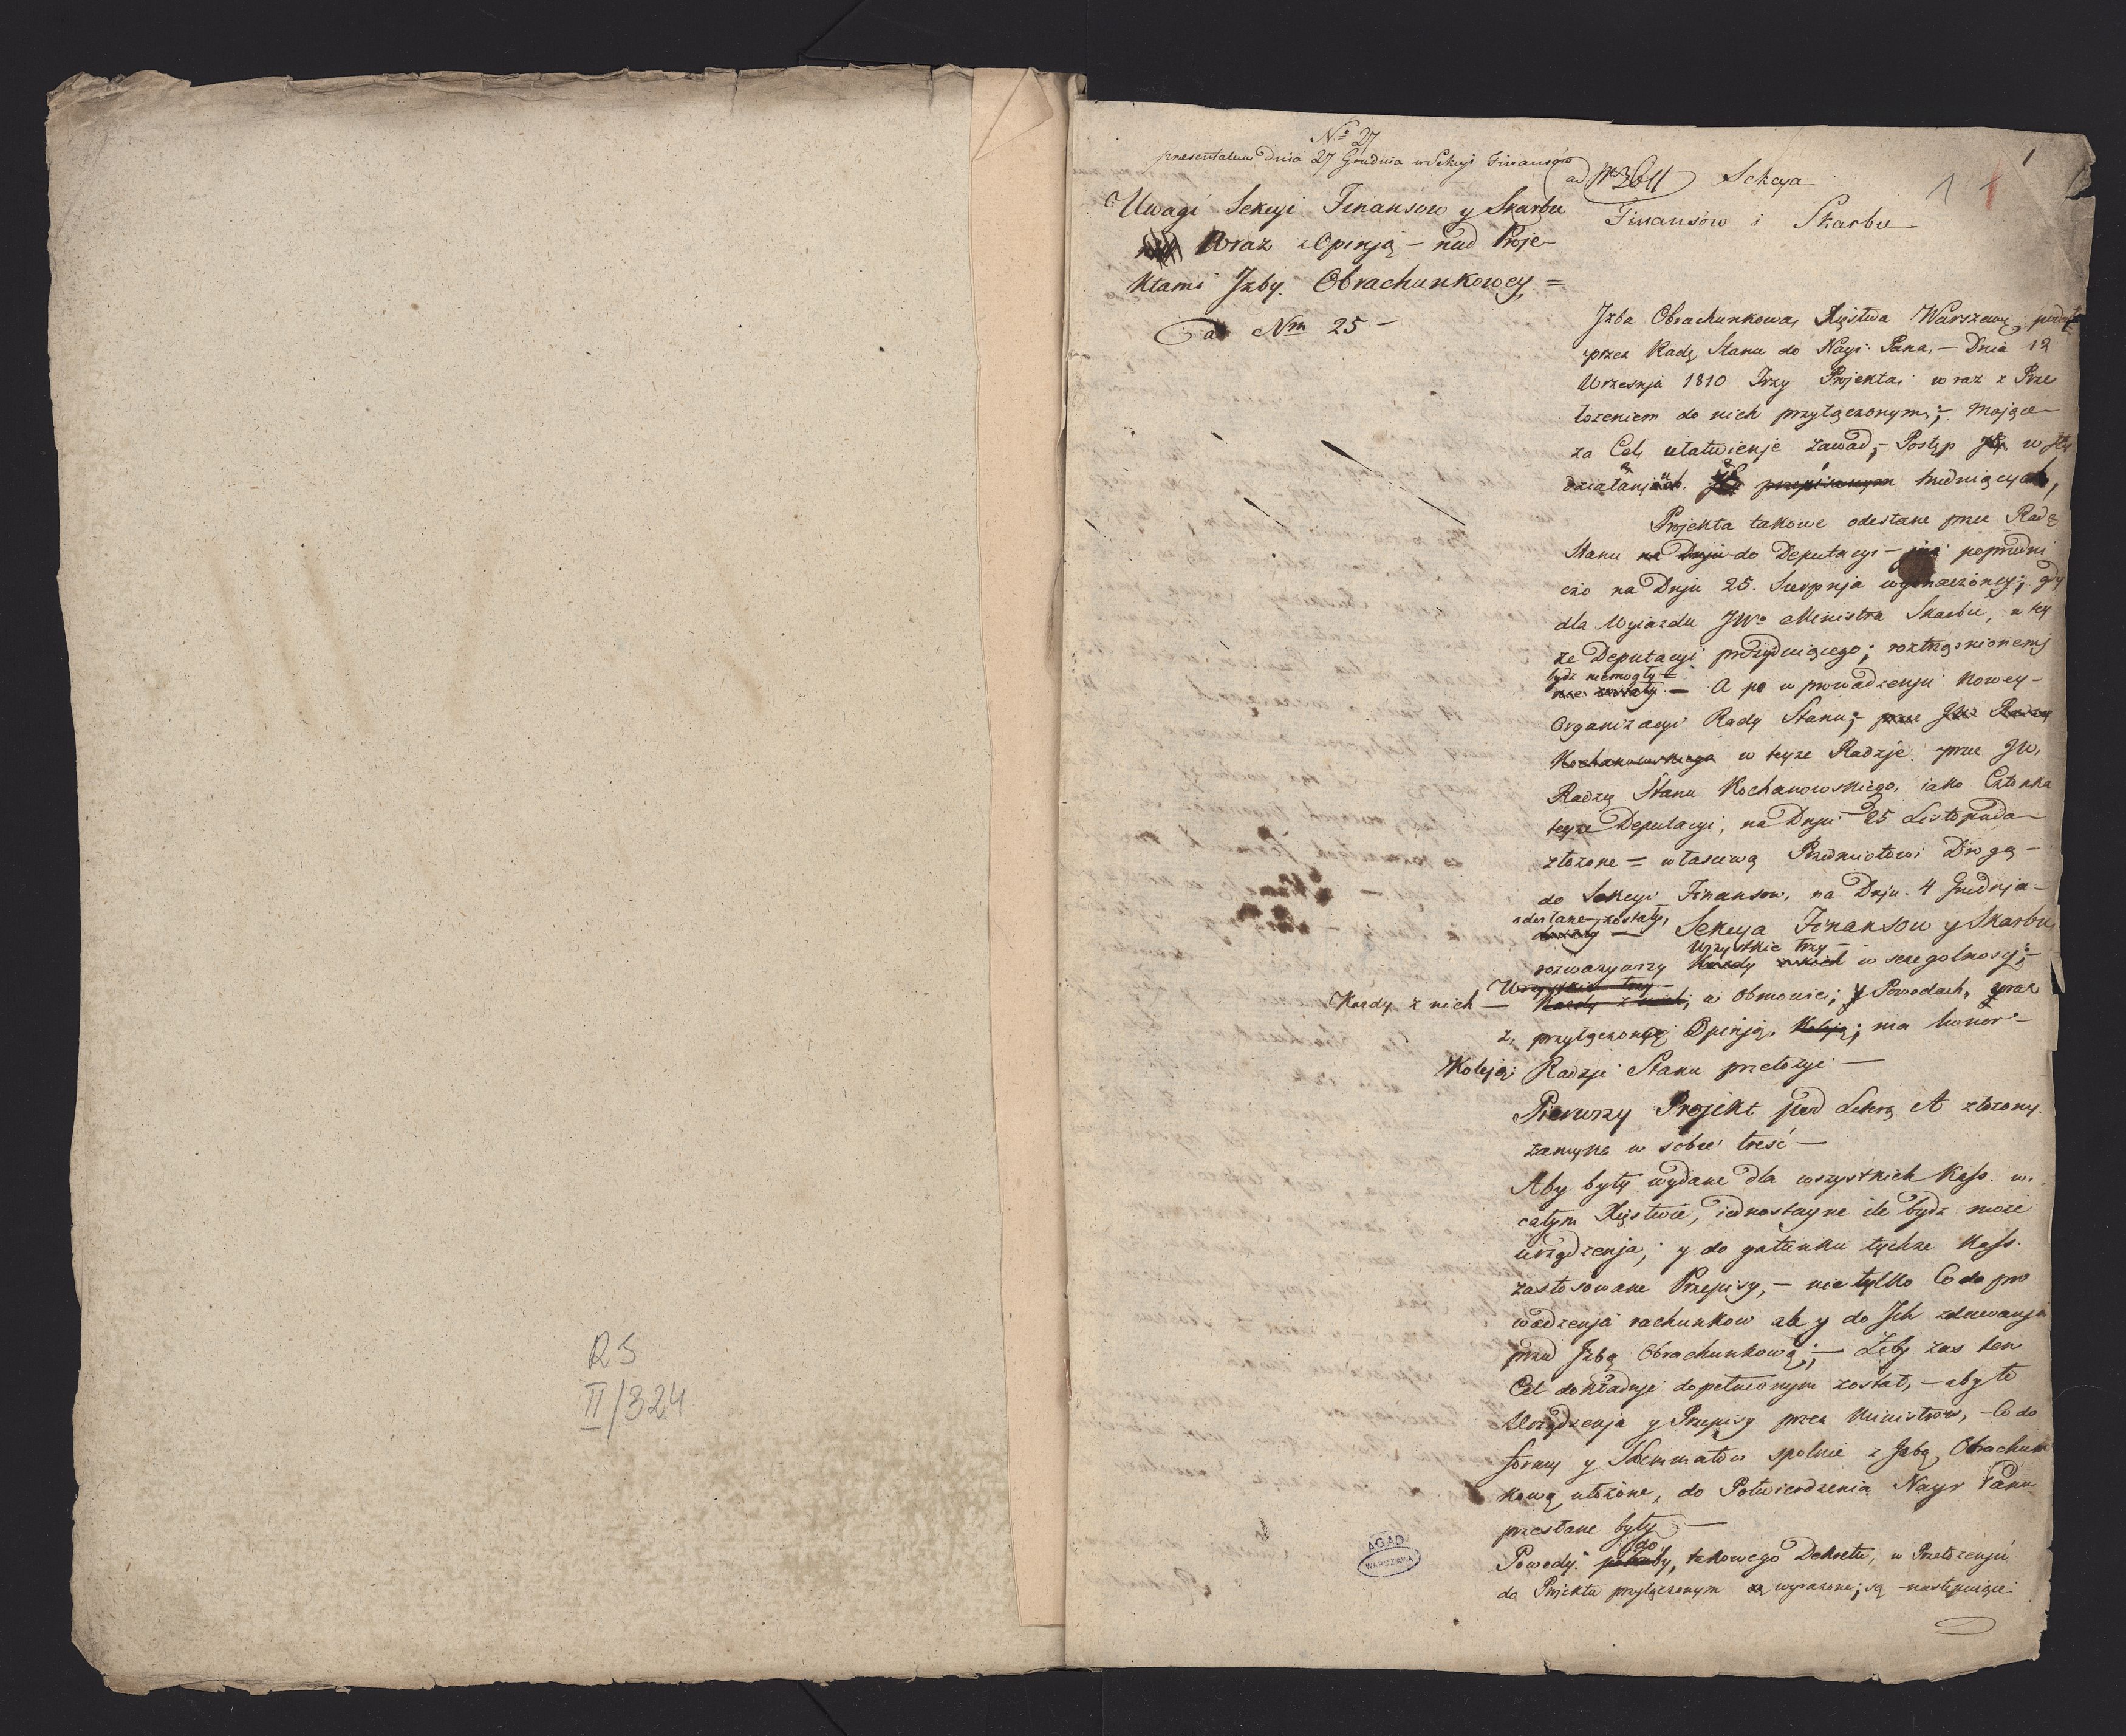 R S
II/324
No 27
praesentatum Dnia 27 Grudnia w Sekcyi Finansow
Uwagi Sekcyi Finansow y Skarbu
Wraz z Opinją – nad Proje-
ktami Jzby Obrachunkowey =
ad Nm 25 –
1
Sekcya
Finansów i Skarbu
Jzba Obrachunkowa, Xięstwa Warszaws.
przez Radę Stanu do Nayi: Pana, – Dnia 12
Wrzesnja 1810 Trzy Projekta; wraz z Prze
łożeniem do nich przyłączonym; – mające –
za Cel, ułatwienje zawad, – Postęp w
działanjach trudniących,
Projekta takowe odesłane przez Radę
Stanu na Dnju do Deputacyi – poprzedni
czo na Dnju 25. Sierpnja wyznaczoney; gdy
dla Wyiazdu JWo Ministra Skarbu, w tey
że Deputacyi prezyduiącego; roztrząśnionemi
bydz niemogły =
nie zostały. – A po wprowadzenju Nowey –
Organizacyi Rady Stanu; – przez JW Radzcę
Kochanowskiego w teyze Radzje przez JW,
Radzcę Stanu Kochanowskiego, iako Członka
teyze Deputacyi, na Dnju 25 Listopada –
złożone = własciwą Przedmiotowi Drogą –
do Sekcyi Finansow, na Dnju. 4 Grudnja –
odesłane zostały,
Sekcya Finansow y Skarbu,
Wszystkie trzy –
rozwazywszy Kazdy z nich w szczegolnosci; –
Wszystkie trzy –
Kazdy z nich – Kazdy z nich, w Obmowie; y Powodach, wraz
z, przyłączoną Opinją, Koleją; ma honor –
Koleją; Radzje Stanu przełozyć –
Pierwszy Projekt pod Literą A złożony
zamyka w sobie treść –
Aby były wydane dla wszystkich Kass. w.
całym Xięstwie, iednostayne ile bydz może
urządzenja, y do gatunku tychze Kass.
zastosowane Przepisy, – nie tylko Co do pro
wadzenja rachunkow ale y do Jch zdawanja
przed Jzbą Obrachunkową; – Żeby zas ten
Cel dokładnje dopełnionym został, – aby te
Urządzenja y Przepisy przez Ministrow, – Co do
formy y Schemmatow spolnie z Jzbą Obrachun
kową ułożone, do Potwierdzenia Nayr Pana
przesłane były –
do
Powody. takowego Dekretu, w Przełożenju
do Projektu przyłączonym wyrazone; są następuiące:
AGAD
WARSZAWA